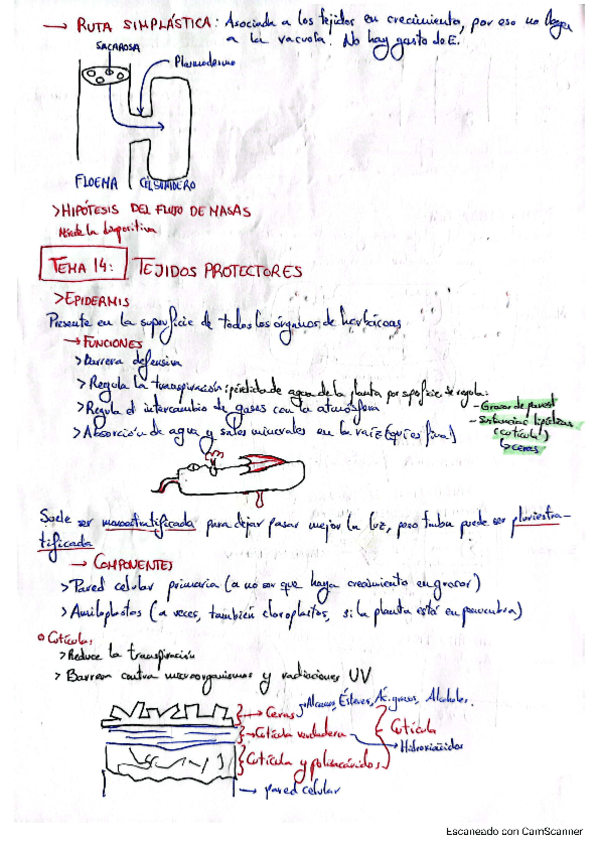 → RUTA SIMPLÁSTICA: Asociada a los tejidos en crecimiento, por eso no llega
a la vacuola. No hay gasto de E.
SACAROSA
Plasmodesmo
FLOEMA
CEL SUMIDERO
> HIPÓTESIS DEL FLUJO DE MASAS
la diapositiva
TEMA 14: TEJIDOS PROTECTORES
> EPIDERMIS
Presente en la superficie de todos los órganos de herbáceas
→ FUNCIONES
> Barrera defensiva
> Regula la transpiración: pérdida de agua de la planta por se regula:
> Regula el intercambio de gases con la atmósfera
- Grosor de pared
- Sustancias lipídicas
(cutícula)
↳ ceras
> Absorción de agua y sales minerales en la raíz
Suele ser monoestratificada para dejar pasar mejor la luz, pero puede ser pluriestra-
tificada
→ COMPONENTES
> Pared celular primaria (a no ser que haya crecimiento en grosor)
> Amiloplastos (a veces, también cloroplastos, si la planta está en penumbra)
Cutícula:
> Reduce la transpiración
> Barrera contra microorganismos y radiaciones UV
→ Ceras → Alcanos, Ésteres, Ác. grasos, Alcoholes.
→ Cutícula verdadera
Cutícula
→ Hidroxiácidos
Cutícula y polisacáridos
→ pared celular
Escaneado con CamScanner